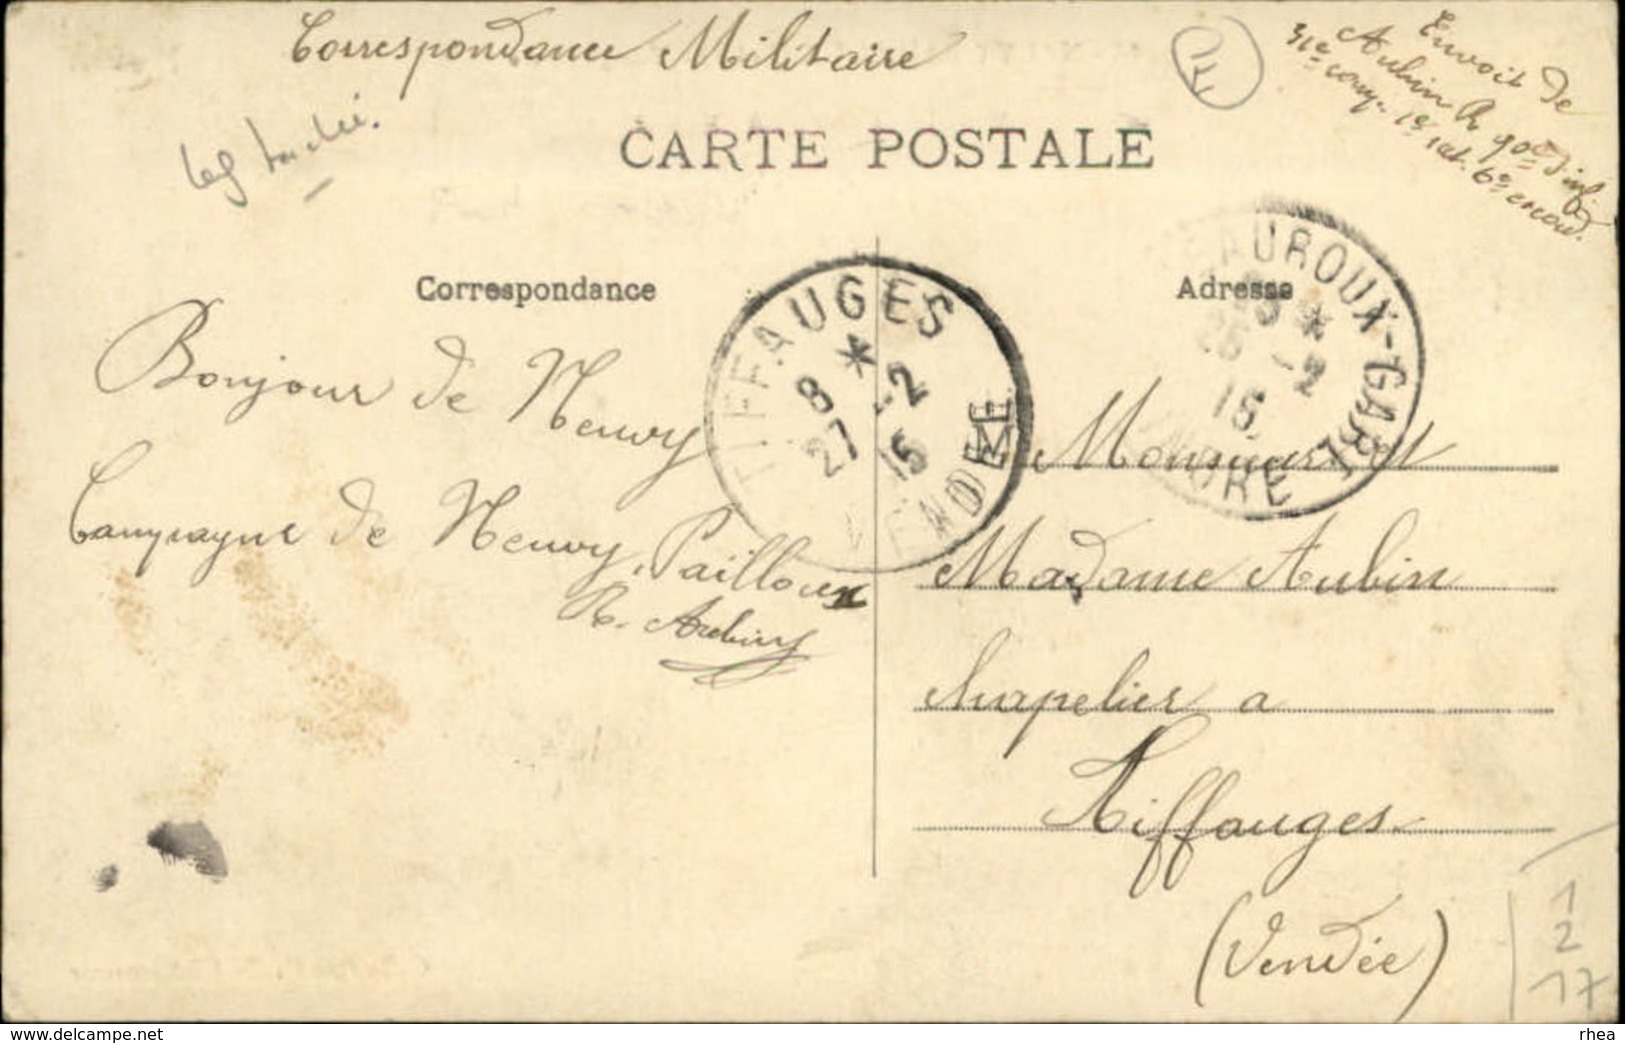 Correspondance Militaire
Envoit de
Aubin R 90e d'inf
31e comp. 1e bat. 6e escou.
CARTE POSTALE
Correspondance
Adresse
TIFFAUGES
8 * -2
27 15
VENDÉE
CHATEAUROUX-GARE
* 
26 -2
15
INDRE
Bonjour de Neuvy
Campagne de Neuvy, Pailloux
R. Aubin
Monsieur et
Madame Aubin
chapelier a
Tiffauges
(Vendée)
1
2
17
rhea